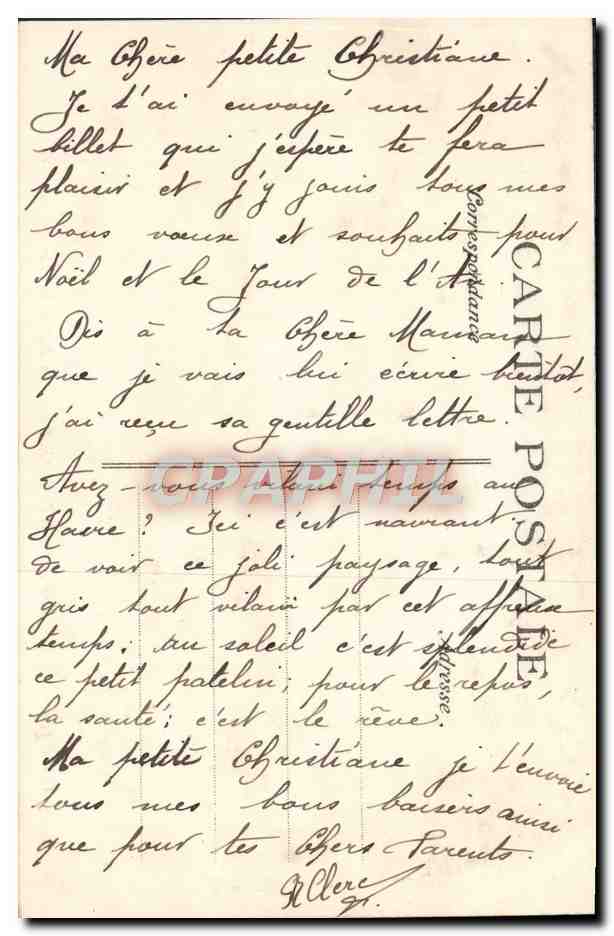 Ma Chère petite Christiane.
Je t'ai envoyé un petit
billet qui j'espère te fera
plaisir et j'y jouis tous mes
bons vœux et souhaits pour
Noël et le Jour de l'A
Dis à ta Chère Maman
que je vais lui écrire bientôt,
j'ai reçu sa gentille lettre.
Avez-vous vilain temps au
Havre? Ici c'est navrant
de voir ce joli paysage, tout
gris tout vilain par cet affreux
temps; au soleil c'est splendide
ce petit patelin; pour le repos,
la santé; c'est le rêve.
Ma petite Christiane je t'envoie
tous mes bons baisers ainsi
que pour tes Chers Parents.
Clerc
CARTE POSTALE
Correspondance
Adresse
CPAPHIL